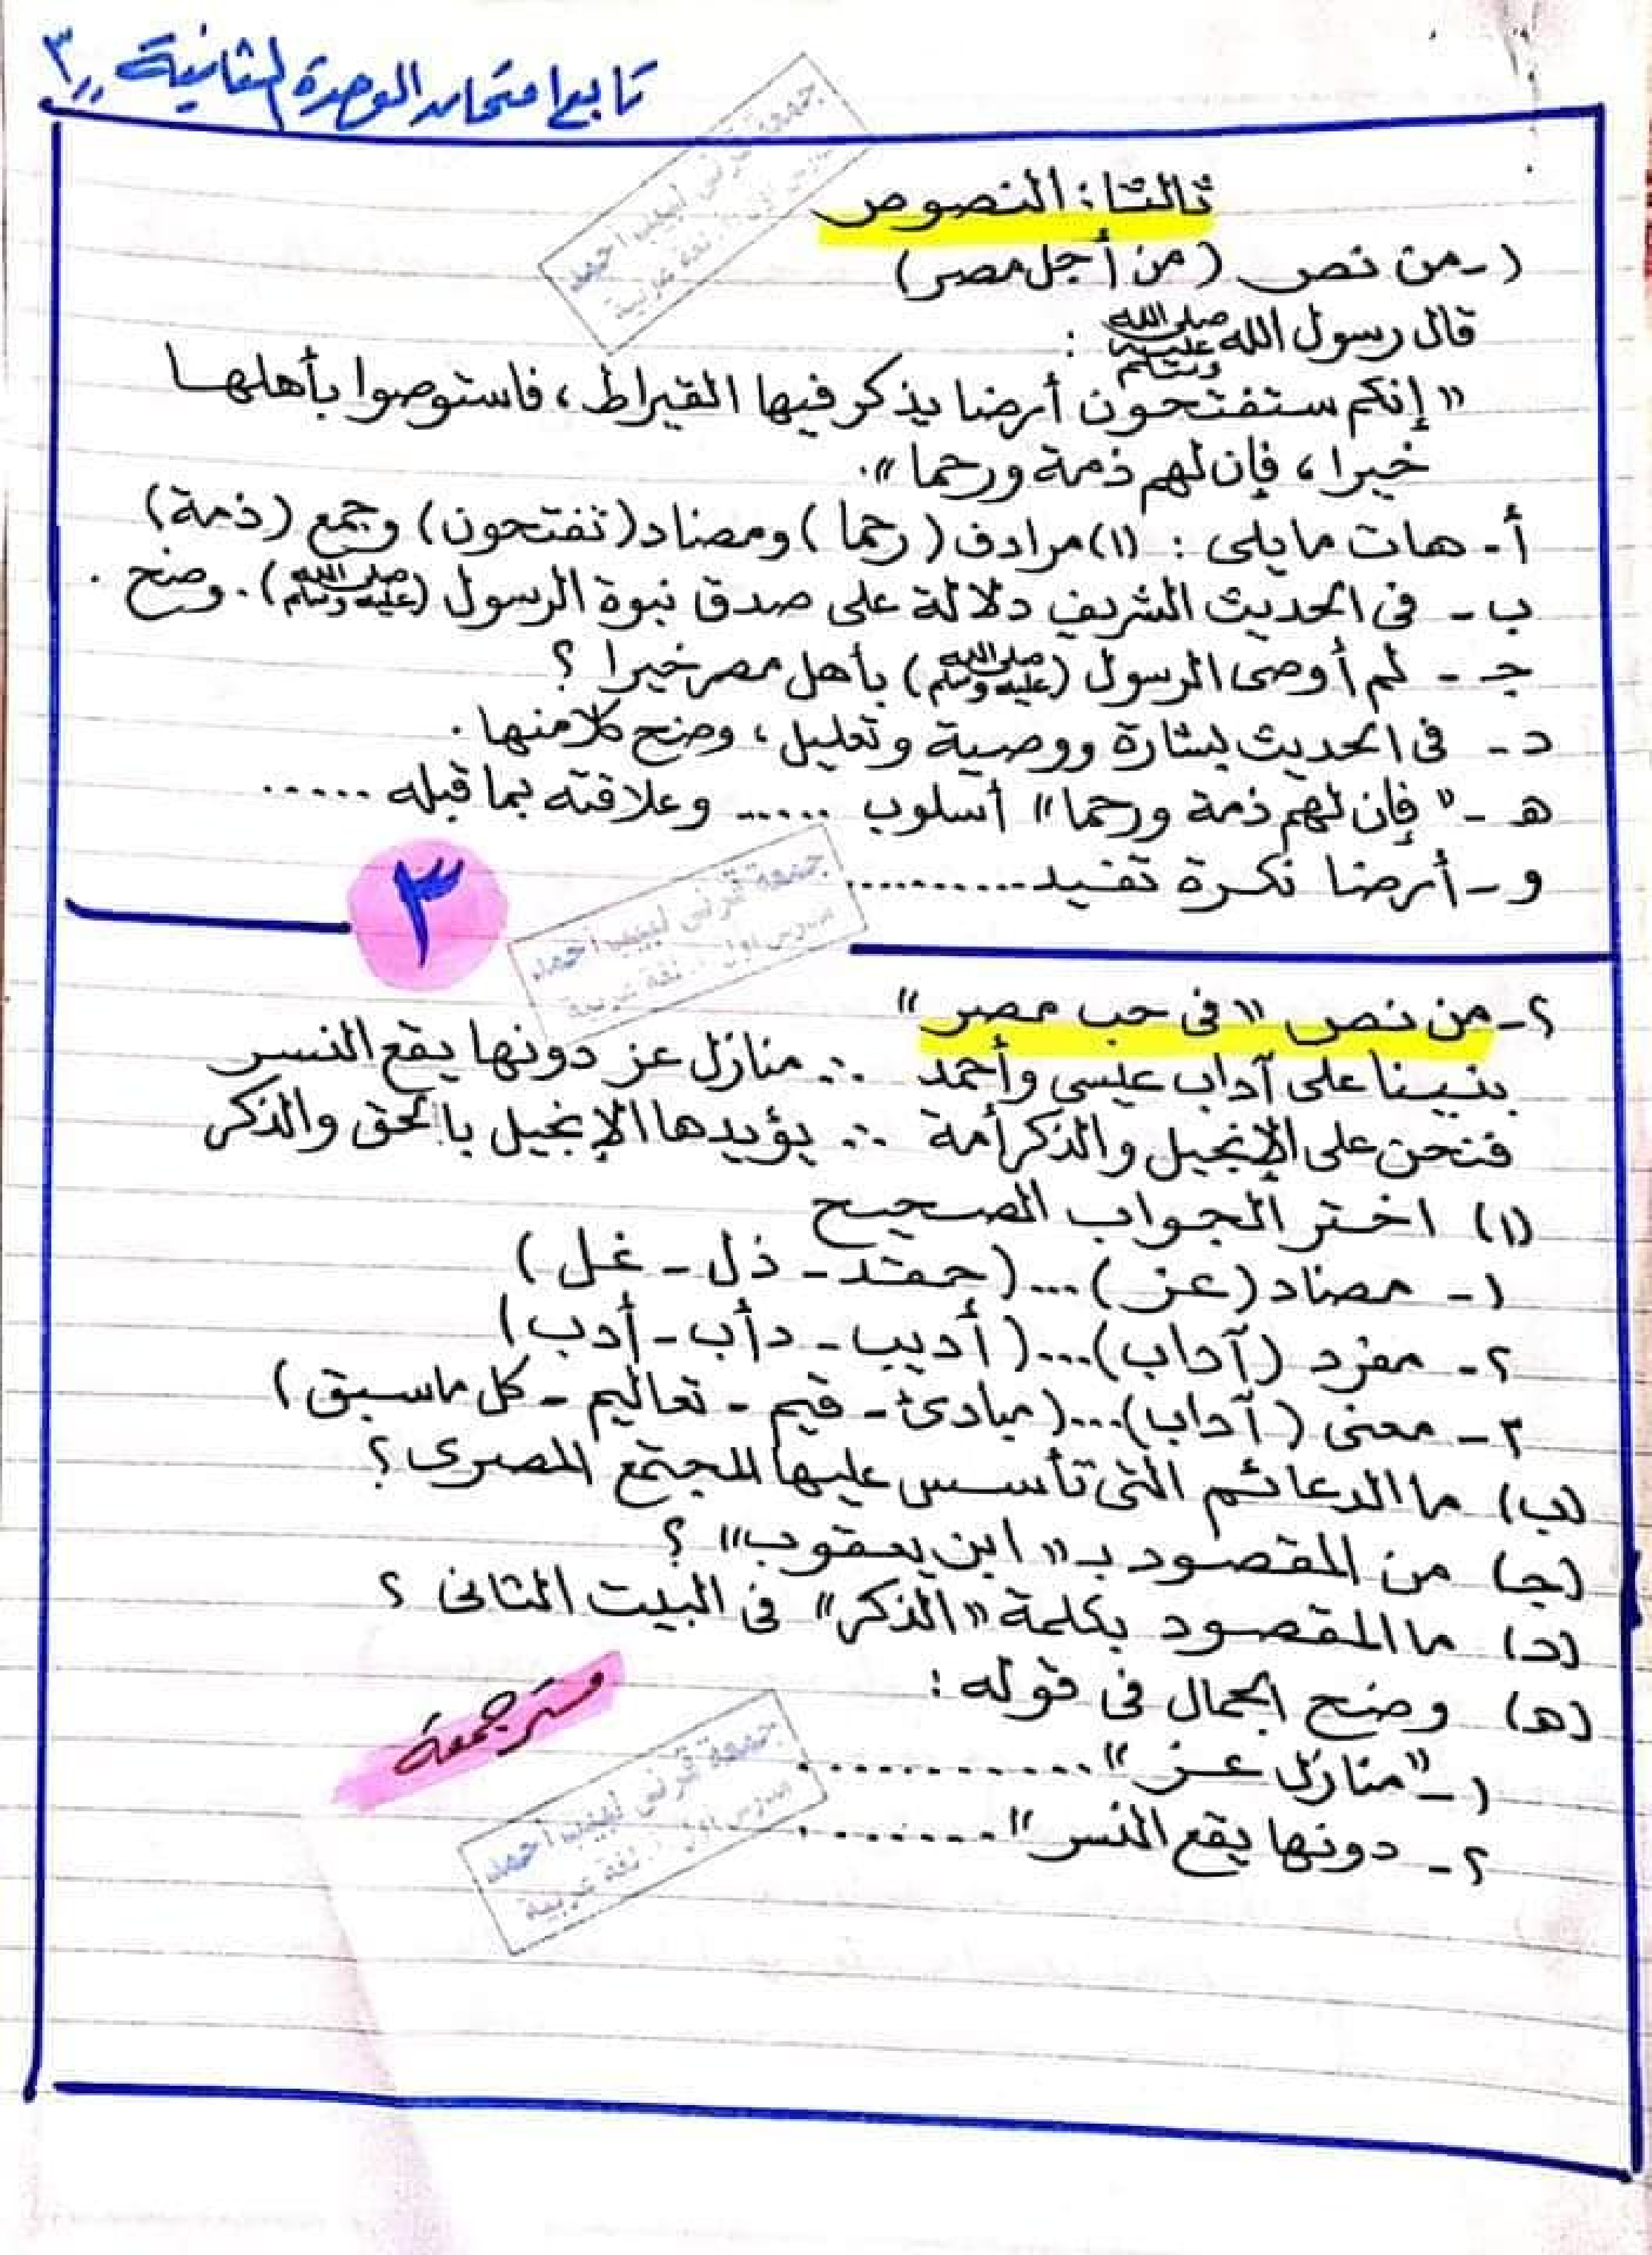 تابع امتحان الوحدة الثانية ,, ٣
ثالثا: النصوص
١- من نص (من أجل مصر)
قال رسول الله صلى الله عليه وسلم :
"إنكم ستفتحون أرضا يذكر فيها القيراط، فاستوصوا بأهلها
خيرا، فإن لهم ذمة ورحما".
أ- هات ما يلى : (١) مرادف (رحما) ومضاد (تفتحون) وجمع (ذمة)
ب- فى الحديث الشريف دلالة على صدق نبوة الرسول (صلى الله عليه وسلم). وضح .
جـ - لم أوصى الرسول (صلى الله عليه وسلم) بأهل مصر خيرا ؟
د- فى الحديث بشارة ووصية وتعليل، وضح كلا منها .
هـ - "فإن لهم ذمة ورحما" أسلوب ...... وعلاقته بما قبله ......
و- أرضا نكرة تفيد ..........
٣
٢- من نص "فى حب مصر"
بنينا على آداب عيسى وأحمد ∴ منازل عز دونها يقع النسر
فنحن على الإنجيل والذكر أمة ∴ يؤيدها الإنجيل بالحق والذكر
(١) اختر الجواب الصحيح
١- مضاد (عز)...(حقد - ذل - غل)
٢- مفرد (آداب)...(أديب - دأب - أدب)
٣- معنى (آداب)...(مبادئ - قيم - تعاليم - كل ما سبق)
(ب) ما الدعائم التى تأسس عليها المجتمع المصرى؟
(جـ) من المقصود بـ "ابن يعقوب" ؟
(د) ما المقصود بكلمة "الذكر" فى البيت الثانى ؟
(هـ) وضح الجمال فى قوله :
١- "منازل عز" ............
٢- دونها يقع النسر" .........
جمعة قرنى لبيب أحمد
مدرس أول أ. لغة عربية
جمعة قرنى لبيب أحمد
مدرس أول أ. لغة عربية
جمعة قرنى لبيب أحمد
مدرس أول أ. لغة عربية